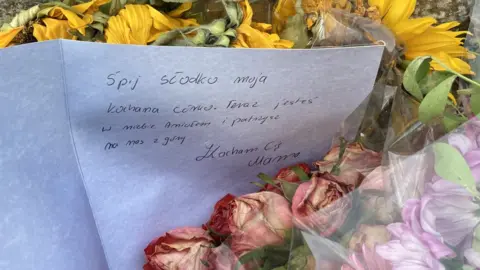 Śpij słodko moja
kochana córciu. Teraz jesteś
w niebie aniołem i patrzysz
na nas z góry
Kocham Cię
Mama